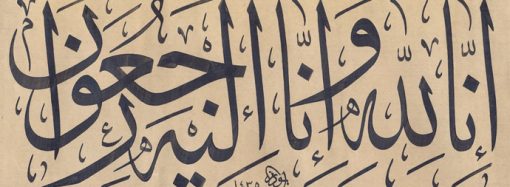 إنّا لله وإنّا إليه راجعون
١٤٣٥